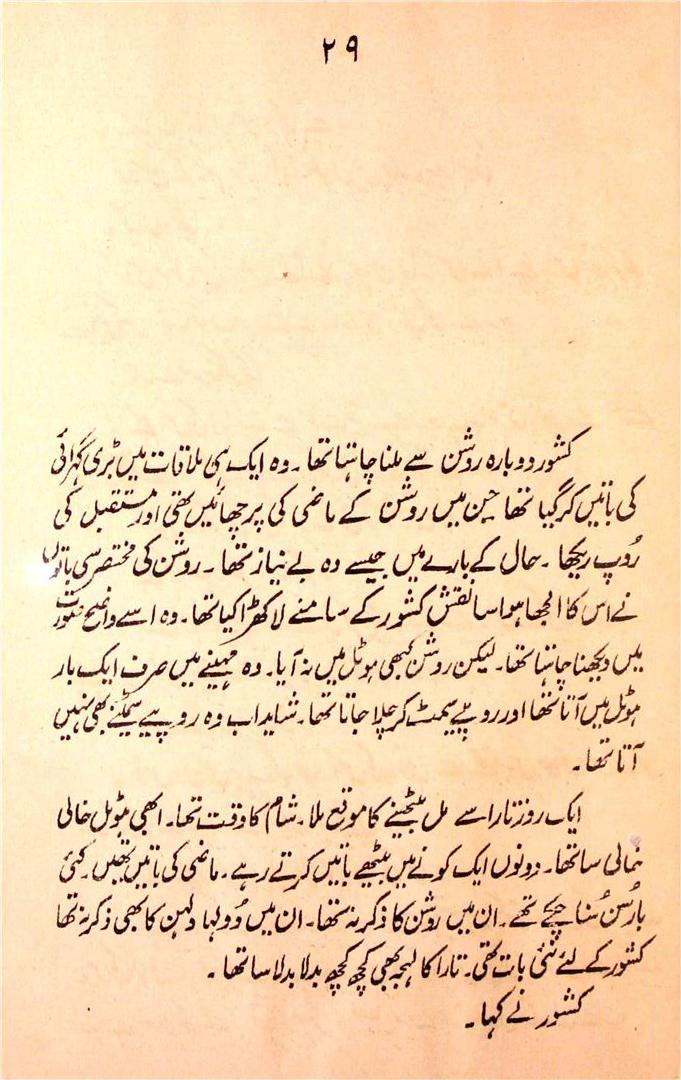 ۲۹
کشور دوبارہ روشن سے ملنا چاہتا تھا ۔ وہ ایک ہی ملاقات میں بڑی گہرائی
کی باتیں کر گیا تھا جن میں روشن کے ماضی کی پرچھائیں تھی اور مستقبل کی
رُوپ ریکھا ۔ حال کے بارے میں جیسے وہ بے نیاز تھا ۔ روشن کی مختصر سی باتوں
نے اس کا الجھا ہوا سا نقش کشور کے سامنے لا کھڑا کیا تھا ۔ وہ اسے واضح صورت
میں دیکھنا چاہتا تھا ۔ لیکن روشن کبھی ہوٹل میں نہ آیا ۔ وہ مہینے میں صرف ایک بار
ہوٹل میں آتا تھا اور روپے سمیٹ کر چلا جاتا تھا ۔ شاید اب وہ روپیے سمیٹنے بھی نہیں
آتا تھا ۔
ایک روز تارا سے مل بیٹھنے کا موقع ملا ۔ شام کا وقت تھا ۔ ابھی ہوٹل خالی
خالی سا تھا ۔ دونوں ایک کونے میں بیٹھے باتیں کرتے رہے ۔ ماضی کی باتیں تھیں ۔ کئی
بار سُن سُنا چکے تھے ۔ ان میں روشن کا ذکر نہ تھا ۔ ان میں دُولہا دلہن کا بھی ذکر نہ تھا
کشور کے لئے نئی بات تھی ۔ تارا کا لہجہ بھی کچھ کچھ بدلا بدلا سا تھا ۔
کشور نے کہا ۔